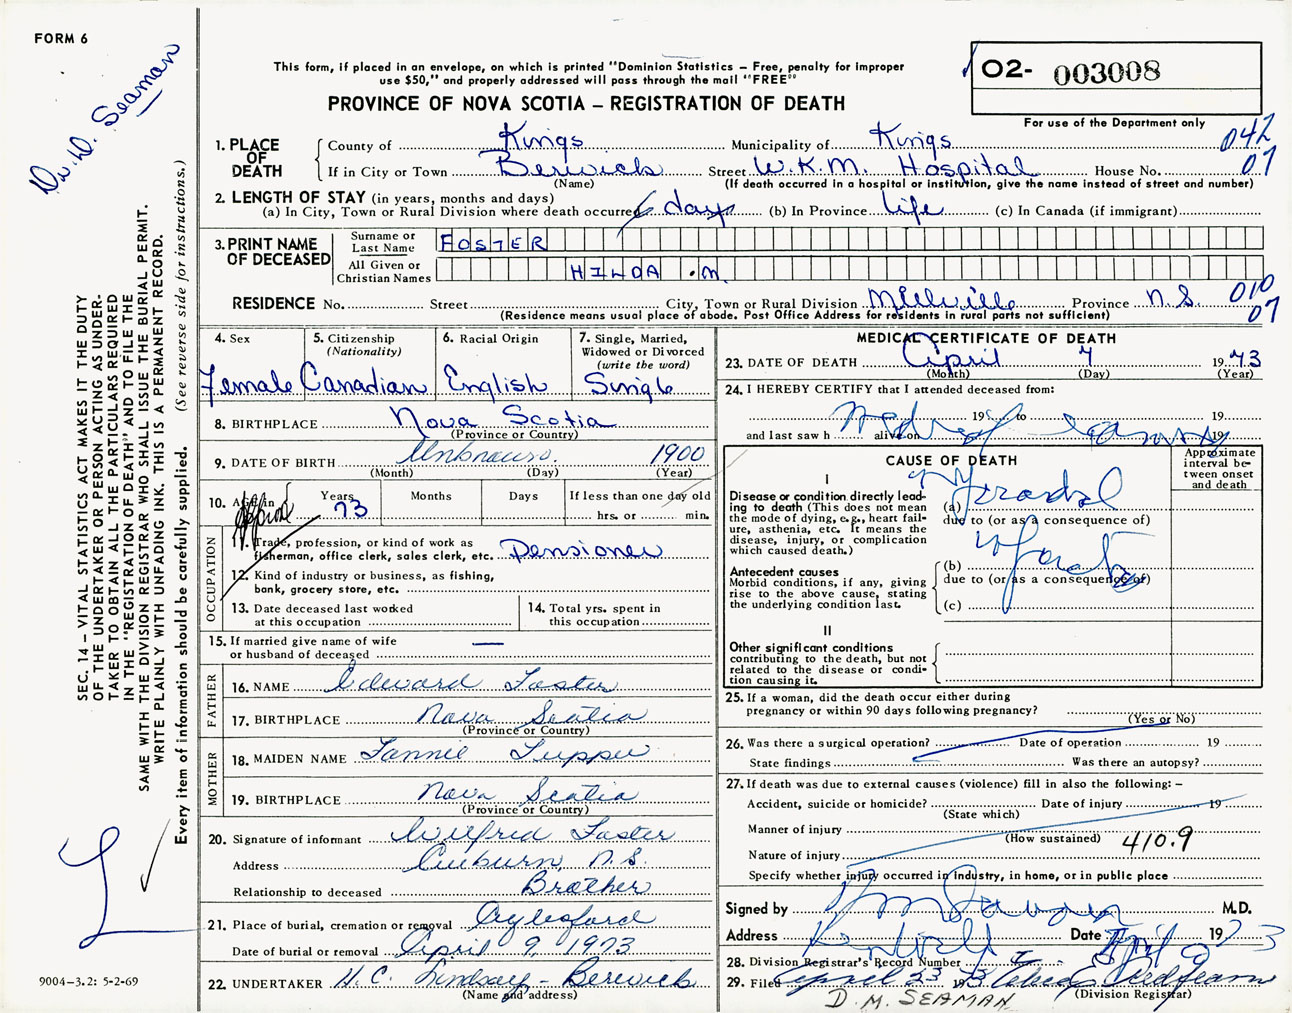 FORM 6
Dr. D. Seaman
This form, if placed in an envelope, on which is printed "Dominion Statistics – Free, penalty for improper
use $50," and properly addressed will pass through the mail "FREE"
PROVINCE OF NOVA SCOTIA – REGISTRATION OF DEATH
02- 003008
For use of the Department only
1. PLACE OF DEATH County of Kings Municipality of Kings 042
If in City or Town Berwick Street W.K.M. Hospital House No. 07
(Name) (If death occurred in a hospital or institution, give the name instead of street and number)
2. LENGTH OF STAY (in years, months and days)
(a) In City, Town or Rural Division where death occurred 6 days (b) In Province life (c) In Canada (if immigrant)
3. PRINT NAME OF DECEASED Surname or Last Name FOSTER
All Given or Christian Names HILDA .M
RESIDENCE No. Street City, Town or Rural Division Millville Province N.S. 010
(Residence means usual place of abode. Post Office Address for residents in rural parts not sufficient) 07
4. Sex Female
5. Citizenship (Nationality) Canadian
6. Racial Origin English
7. Single, Married, Widowed or Divorced (write the word) Single
8. BIRTHPLACE Nova Scotia
(Province or Country)
9. DATE OF BIRTH Unknown 1900
(Month) (Day) (Year)
10. Age in Years 73 Months Days If less than one day old
hrs. or min.
Approx
OCCUPATION
11. Trade, profession, or kind of work as
fisherman, office clerk, sales clerk, etc. Pensioner
12. Kind of industry or business, as fishing,
bank, grocery store, etc.
13. Date deceased last worked
at this occupation
14. Total yrs. spent in
this occupation
15. If married give name of wife
or husband of deceased —
FATHER
16. NAME Edward Foster
17. BIRTHPLACE Nova Scotia
(Province or Country)
MOTHER
18. MAIDEN NAME Fannie Tupper
19. BIRTHPLACE Nova Scotia
(Province or Country)
20. Signature of informant Wilfred Foster
Address Auburn, N.S.
Relationship to deceased Brother
21. Place of burial, cremation or removal Aylesford
Date of burial or removal April 9, 1973
22. UNDERTAKER H.C. Lindsay - Berwick
(Name and address)
MEDICAL CERTIFICATE OF DEATH
23. DATE OF DEATH April 7 1973
(Month) (Day) (Year)
24. I HEREBY CERTIFY that I attended deceased from:
19 to 19
and last saw h alive on 19
CAUSE OF DEATH
Approximate interval between onset and death
I
Disease or condition directly leading to death (This does not mean the mode of dying, e.g., heart failure, asthenia, etc. It means the disease, injury, or complication which caused death.)
(a) Myocardial
due to (or as a consequence of)
Infarction
Antecedent causes
Morbid conditions, if any, giving rise to the above cause, stating the underlying condition last.
(b)
due to (or as a consequence of)
(c)
II
Other significant conditions
contributing to the death, but not related to the disease or condition causing it.
25. If a woman, did the death occur either during
pregnancy or within 90 days following pregnancy?
(Yes or No)
26. Was there a surgical operation? Date of operation 19
State findings Was there an autopsy?
27. If death was due to external causes (violence) fill in also the following: –
Accident, suicide or homicide? Date of injury 19
(State which)
Manner of injury
(How sustained) 410.9
Nature of injury
Specify whether injury occurred in industry, in home, or in public place
Signed by D M Seaman M.D.
Address Kentville Date April 9 1973
28. Division Registrar's Record Number
29. Filed April 23 1973
(Division Registrar)
D. M. SEAMAN
SEC. 14 – VITAL STATISTICS ACT MAKES IT THE DUTY
OF THE UNDERTAKER OR PERSON ACTING AS UNDERTAKER TO OBTAIN ALL THE PARTICULARS REQUIRED
IN THE "REGISTRATION OF DEATH" AND TO FILE THE
SAME WITH THE DIVISION REGISTRAR WHO SHALL ISSUE THE BURIAL PERMIT.
WRITE PLAINLY WITH UNFADING INK. THIS IS A PERMANENT RECORD.
Every item of information should be carefully supplied. (See reverse side for instructions.)
9004-3.2: 5-2-69